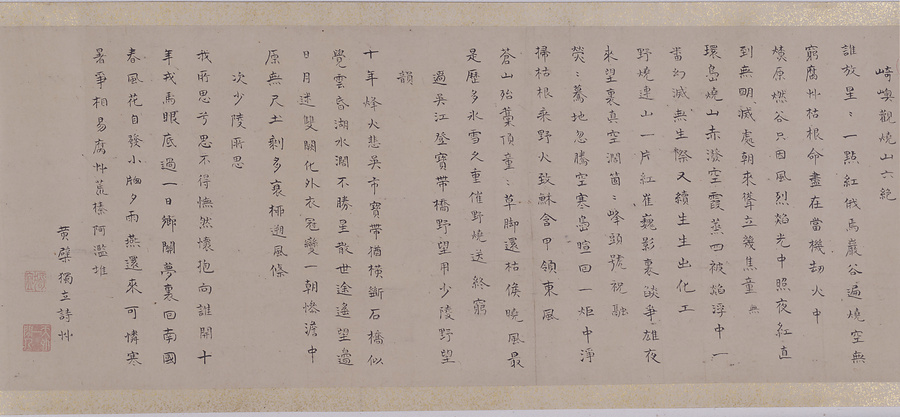 崎嶼觀燒山六絕
誰放星〻一點紅俄焉巖谷遍燒空無
窮腐艸枯根命盡在當機劫火中
燎原燃谷只因風烈焰光中照夜紅直
到無明滅處朝來峯立幾焦童
環島燒山赤潑空霞蒸四被焰浮中一
番幻滅無生際又續生生出化工
野燒連山一片紅崔巍影裏燄爭雄夜
來望裏真空濶箇〻峰頭號祝融
熒〻驀地忽騰空寒島暄回一炬中淨
掃枯根乘野火致穌含甲領東風
蒼山殆藁頂童〻草腳還枯俟曉風最
是歷多氷雪久重催野燒送終窮
過吳江登寶帶橋野望用少陵野望
韻
十年烽火悲吳市寶帶猶橫斷石橋似
覺雲昏湖水濶不勝星散世途遙望邊
日月迷雙闕化外衣冠變一朝慘澹中
原無尺土剩多哀極遡風條
次少陵所思
我所思兮思不得憮然懷抱向誰開十
年戎馬眼底過一日鄉關夢裏回南國
春風花自發小牕夕雨燕還來可憐寒
暑爭相易腐艸荒榛阿濫堆
黃檗獨立詩艸